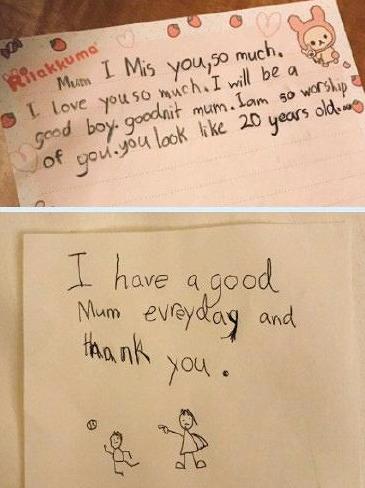 Rilakkuma
Mum I Mis you,so much.
I love you so much.I will be a
good boy.goodnit mum.Iam so worship
of you.you look like 20 years old.
I have a good
Mum evreyday and
thank you.